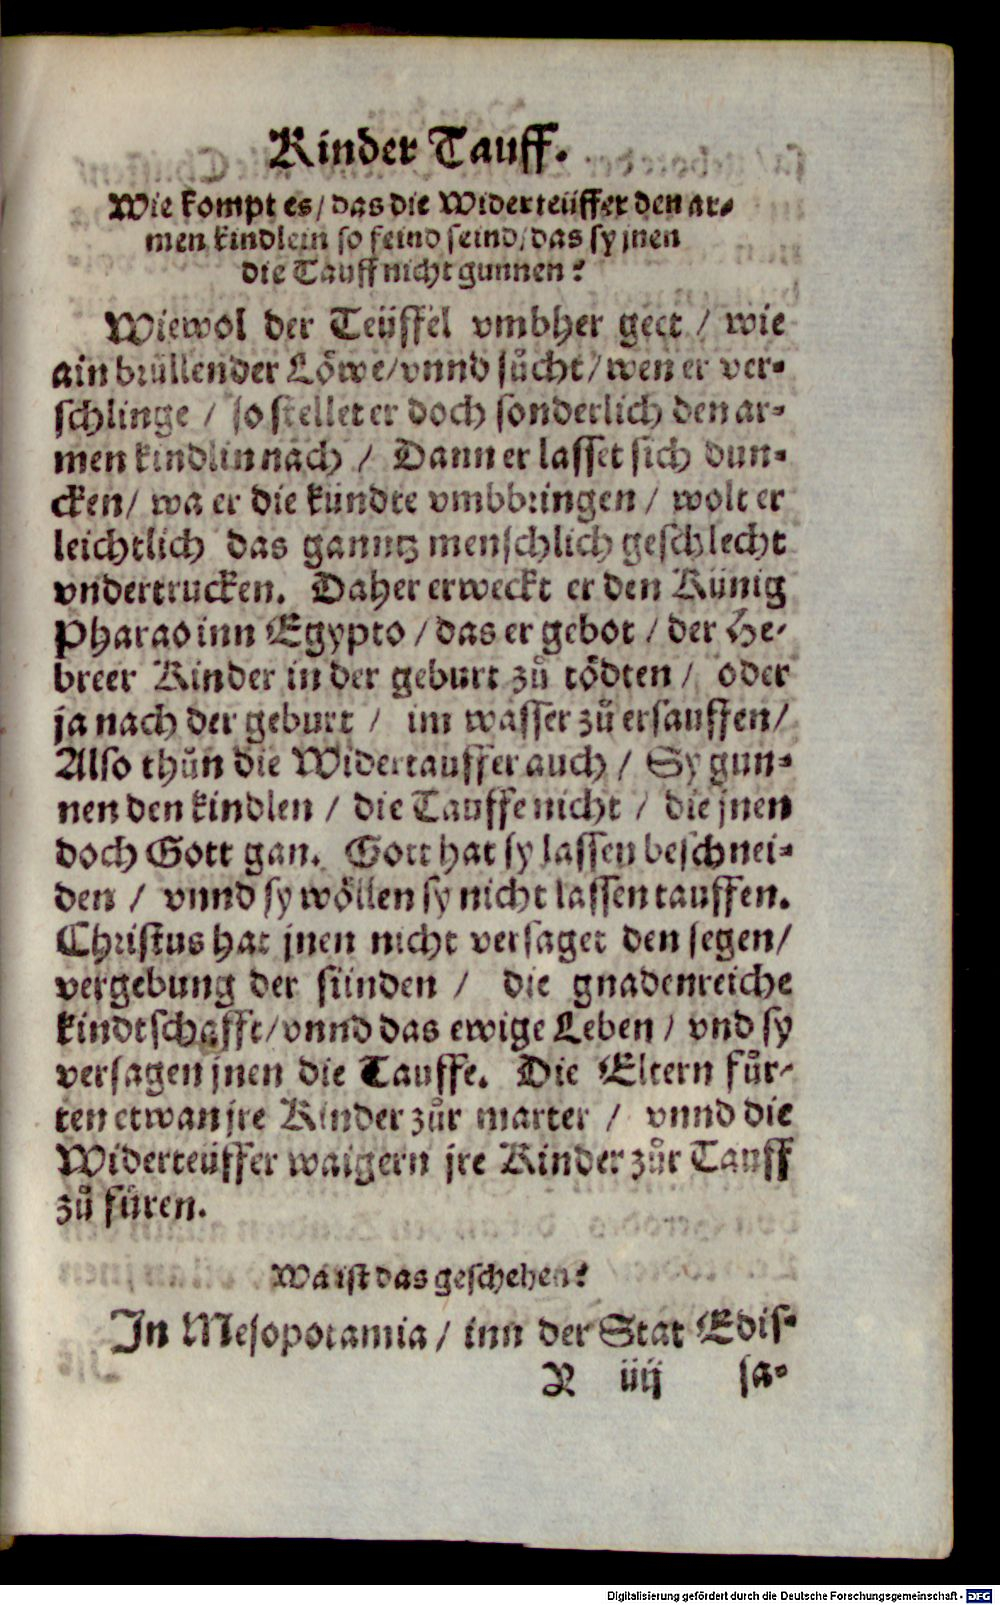 Kinder Tauff.
Wie kompt es/ das die Widerteüffer den ar-
men kindlein so feind seind/ das sy jnen
die Tauff nicht gunnen?
Wiewol der Teüffel vmbher geet / wie
ain brüllender Löwe/vnnd sůcht/wen er ver-
schlinge / so stellet er doch sonderlich den ar-
men kindlin nach / Dann er lasset sich dun-
cken/ wa er die kündte vmbbringen / wolt er
leichtlich das ganntz menschlich geschlecht
vndertrucken. Daher erweckt er den Künig
Pharao inn Egypto / das er gebot / der He-
breer Kinder in der geburt zů tödten / oder
ja nach der geburt / im wasser zů ersauffen/
Also thůn die Widertauffer auch / Sy gun-
nen den kindlen / die Tauffe nicht / die jnen
doch Gott gan. Gott hat sy lassen beschnei-
den / vnnd sy wöllen sy nicht lassen tauffen.
Christus hat jnen nicht versaget den segen/
vergebung der sünden / die gnadenreiche
kindtschafft/vnnd das ewige Leben / vnd sy
versagen jnen die Tauffe. Die Eltern fůr-
ten etwan jre Kinder zůr marter / vnnd die
Widerteüffer waigern jre Kinder zůr Tauff
zů füren.
Wa ist das geschehen?
In Mesopotamia / inn der Stat Edis-
R iiij sa-
Digitalisierung gefördert durch die Deutsche Forschungsgemeinschaft - DFG